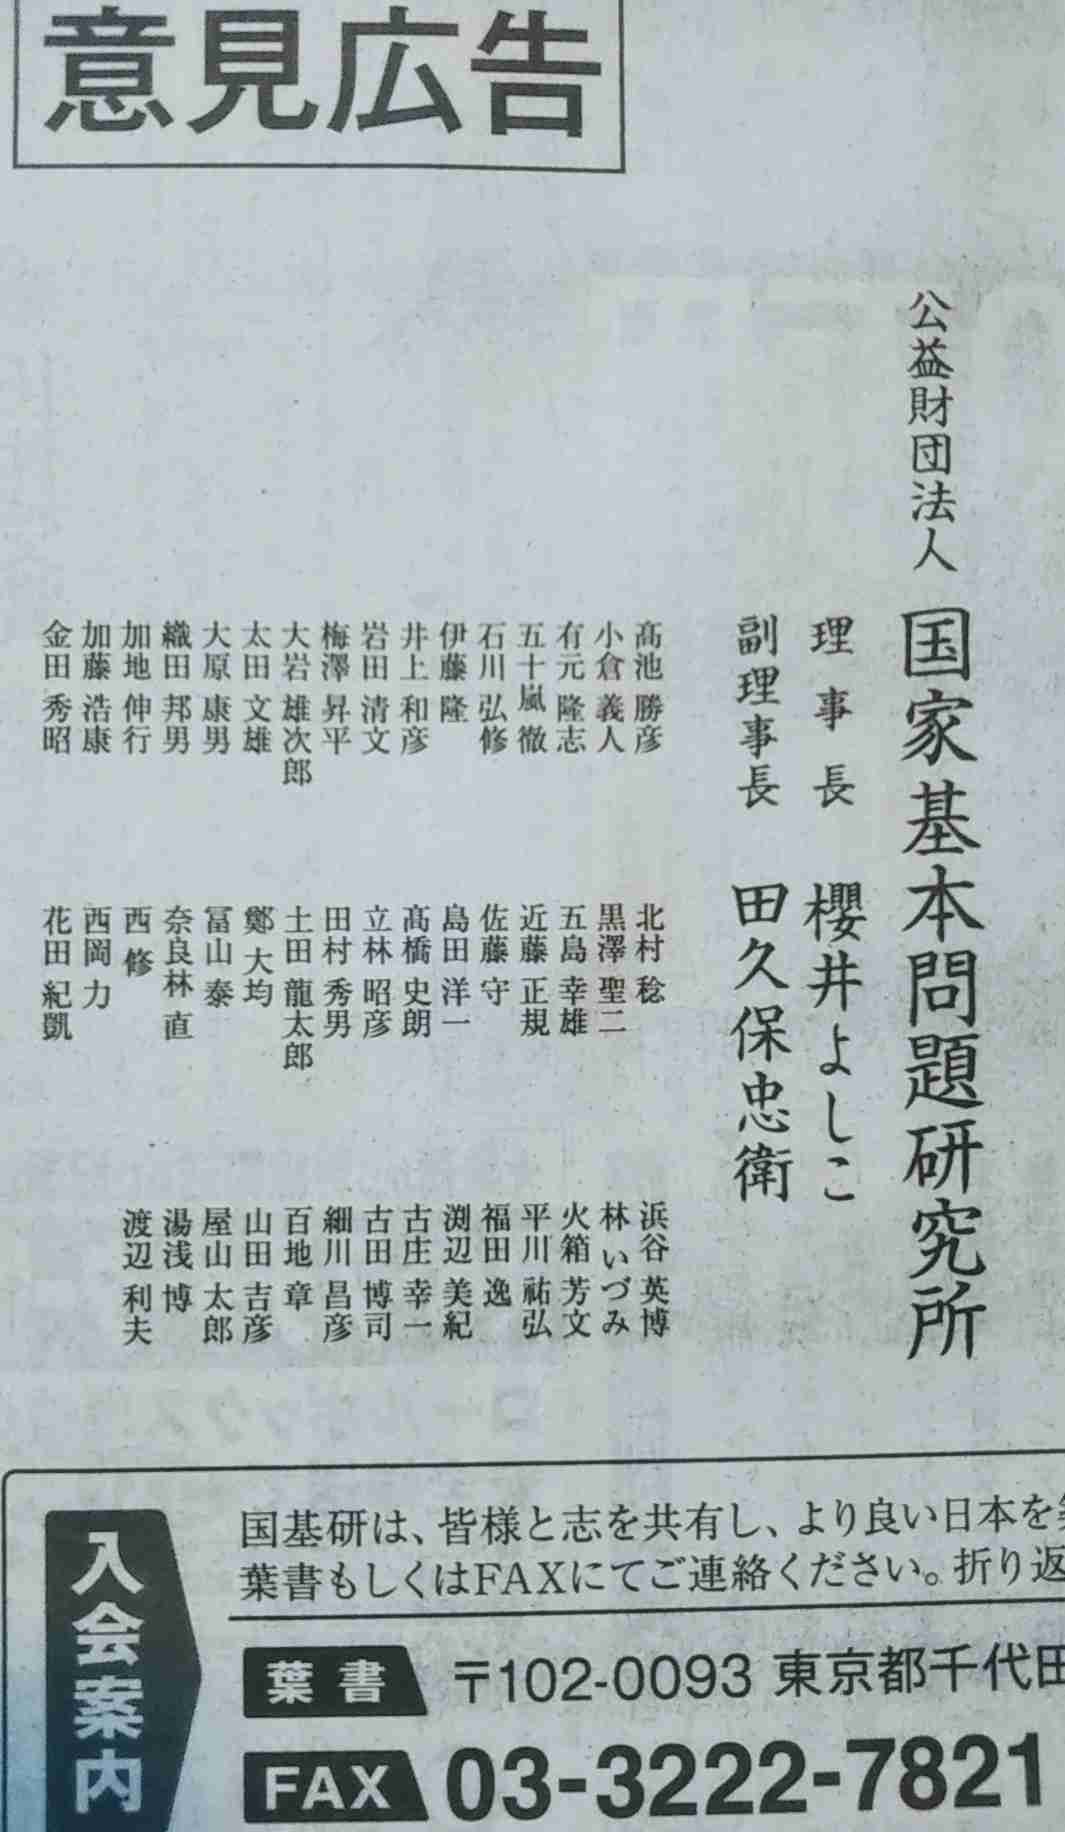 意見広告
公益財団法人 国家基本問題研究所
理事長 櫻井よしこ
副理事長 田久保忠衛
髙池 勝彦
小倉 義人
有元 隆志
五十嵐 徹
石川 弘修
伊藤 隆
井上 和彦
岩田 清文
梅澤 昇平
大岩 雄次郎
太田 文雄
大原 康男
織田 邦男
加地 伸行
加藤 浩康
金田 秀昭
北村 稔
黒澤 聖二
五島 幸雄
近藤 正規
佐藤 守
島田 洋一
髙橋 史朗
立林 昭彦
田村 秀男
土田 龍太郎
鄭 大均
冨山 泰
奈良林 直
西 修
西岡 力
花田 紀凱
浜谷 英博
林 いづみ
火箱 芳文
平川 祐弘
福田 逸
渕辺 美紀
古庄 幸一
古田 博司
細川 昌彦
百地 章
山田 吉彦
屋山 太郎
湯浅 博
渡辺 利夫
入会案内
国基研は、皆様と志を共有し、より良い日本を
葉書もしくはFAXにてご連絡ください。折り返
葉書 〒102-0093 東京都千代田
FAX 03-3222-7821